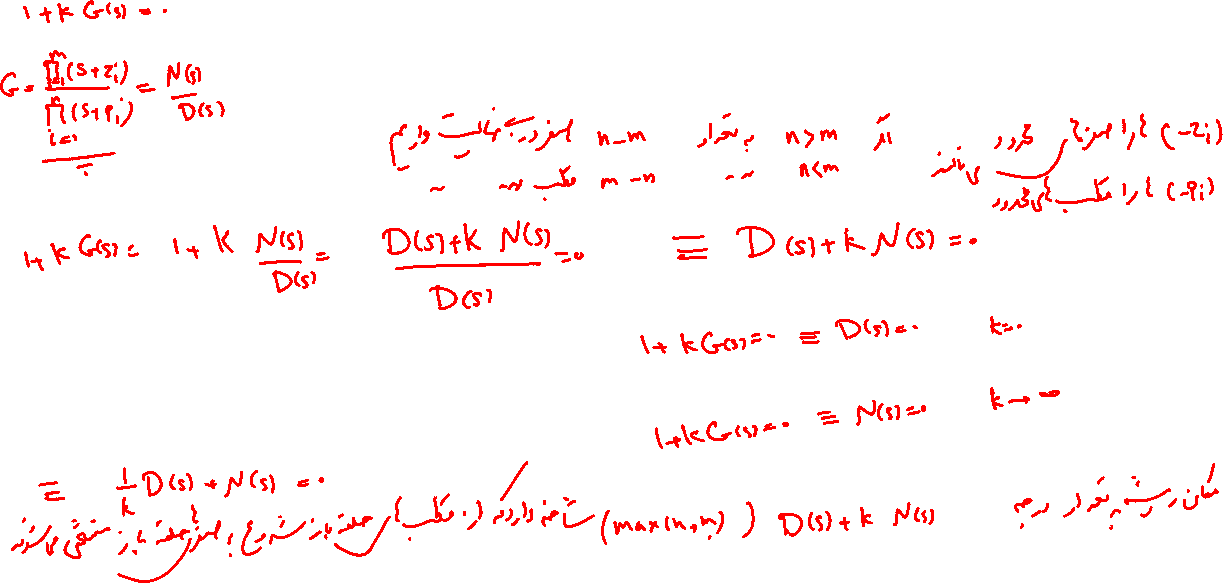 1+k G(s) = ۰
G = ∏(s+zᵢ) / ∏(s+pᵢ) = N(s)/D(s)
(-zᵢ) ها را صفرهای
(-pᵢ) ها را قطب‌های
اگر n>m به تعداد n-m صفر در بی‌نهایت داریم
n<m ~ ~ m-n قطب ~ ~
1+k G(s) = 1+k N(s)/D(s) = (D(s)+k N(s))/D(s) = 0 ≡ D(s)+k N(s) = ۰
1+k G(s) = ۰ ≡ D(s) = ۰ k=۰
1+k G(s) = ۰ ≡ N(s) = ۰ k→∞
≡ 1/k D(s) + N(s) = ۰
مکان ریشه به تعداد درجه D(s)+k N(s) (max(n,m)) شاخه دارد که از قطب‌های حلقه باز شروع و به صفرهای حلقه باز منتهی می‌شوند